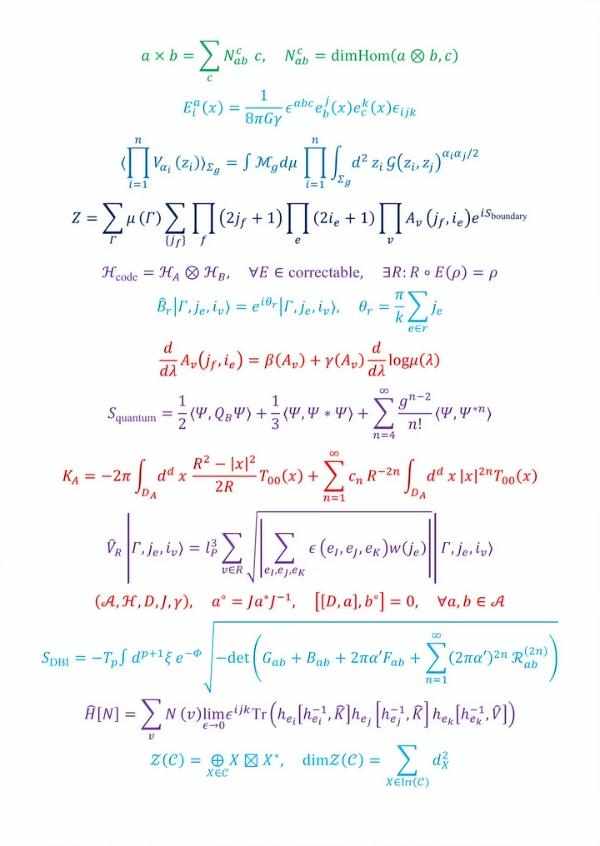 a × b = ∑_c N^c_{ab} c, N^c_{ab} = dimHom(a ⊗ b, c)
E^a_i(x) = 1/(8πGγ) ϵ^{abc} e^j_b(x) e^k_c(x) ϵ_{ijk}
⟨∏_{i=1}^{n} V_{α_i}(z_i)⟩_{Σ_g} = ∫ ℳ_g dμ ∏_{i=1}^{n} ∫_{Σ_g} d² z_i 𝒢(z_i, z_j)^{α_i α_j/2}
Z = ∑_Γ μ(Γ) ∑_{{j_f}} ∏_f (2j_f + 1) ∏_e (2i_e + 1) ∏_v A_v(j_f, i_e) e^{iS_boundary}
ℋ_code = ℋ_A ⊗ ℋ_B, ∀E ∈ correctable, ∃R: R ∘ E(ρ) = ρ
B̂_r|Γ, j_e, i_v⟩ = e^{iθ_r}|Γ, j_e, i_v⟩, θ_r = π/k ∑_{e∈r} j_e
d/dλ A_v(j_f, i_e) = β(A_v) + γ(A_v) d/dλ logμ(λ)
S_quantum = 1/2 ⟨Ψ, Q_B Ψ⟩ + 1/3 ⟨Ψ, Ψ ∗ Ψ⟩ + ∑_{n=4}^{∞} g^{n−2}/n! ⟨Ψ, Ψ^{∗n}⟩
K_A = −2π ∫_{D_A} d^d x (R² − |x|²)/2R T_{00}(x) + ∑_{n=1}^{∞} c_n R^{−2n} ∫_{D_A} d^d x |x|^{2n} T_{00}(x)
V̂_R |Γ, j_e, i_v⟩ = l_P^3 ∑_{v∈R} √|∑_{e_I,e_J,e_K} ϵ(e_I, e_J, e_K) w(j_e)| |Γ, j_e, i_v⟩
(𝒜, ℋ, D, J, γ), a° = Ja*J^{−1}, [[D, a], b°] = 0, ∀a, b ∈ 𝒜
S_DBI = −T_p ∫ d^{p+1} ξ e^{−Φ} √(−det(G_{ab} + B_{ab} + 2πα′F_{ab} + ∑_{n=1}^{∞} (2πα′)^{2n} ℛ_{ab}^{(2n)}))
Ĥ[N] = ∑_v N(v) lim_{ϵ→0} ϵ^{ijk} Tr(h_{e_i}[h_{e_i}^{−1}, K̂] h_{e_j}[h_{e_j}^{−1}, K̂] h_{e_k}[h_{e_k}^{−1}, V̂])
𝒵(𝒞) = ⊕_{X∈𝒞} X ⊠ X*, dim𝒵(𝒞) = ∑_{X∈In(𝒞)} d_X^2